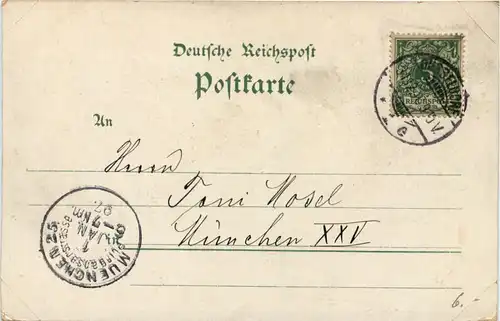 Deutsche Reichspost
Postkarte
An
Herrn
Toni Mosel
in
München XXV
MUENCHEN 25
1
JAN
97
5
REICHSPOST
6.-